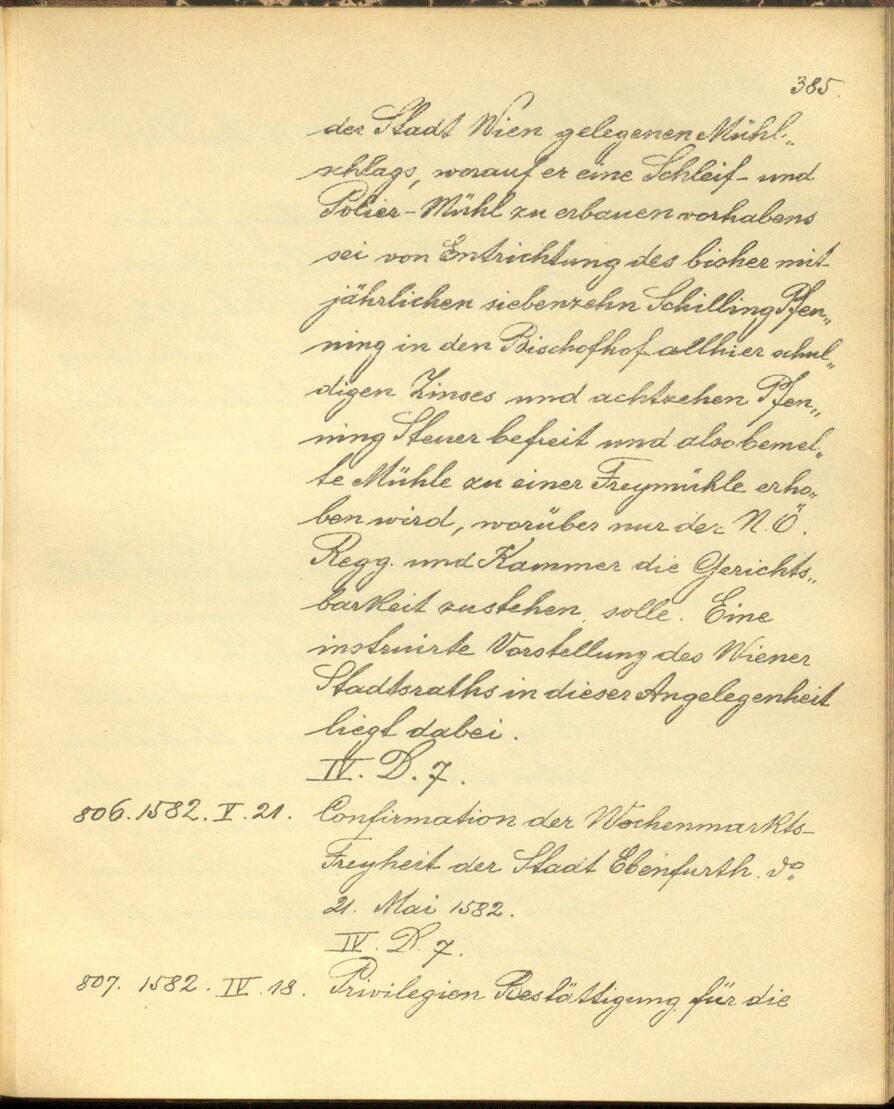 385.
der Stadt Wien gelegenen Mühl„
schlags, worauf er eine Schleif- und
Polier-Mühl zu erbauen vorhabens
sei von Entrichtung des bisher mit
jährlichen siebenzehn Schilling Pfen„
ning in den Bischofhof allhier schul„
digen Zinses und achtzehen Pfen„
ning Steuer befreit und also bemel„
te Mühle zu einer Freymühle erho„
ben wird, worüber nur der N.Ö.
Regg. und Kammer die Gerichts„
barkeit zustehen solle. Eine
instruirte Vorstellung des Wiener
Stadtsraths in dieser Angelegenheit
liegt dabei.
IV. D. 7.
806. 1582. V. 21. Confirmation der Wochenmarkts-
Freyheit der Stadt Ebenfurth. dº
21. Mai 1582.
IV. D. 7.
807. 1582. IV. 18. Privilegien Bestättigung für die